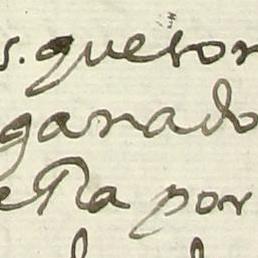 s. queson
ganado
esta por